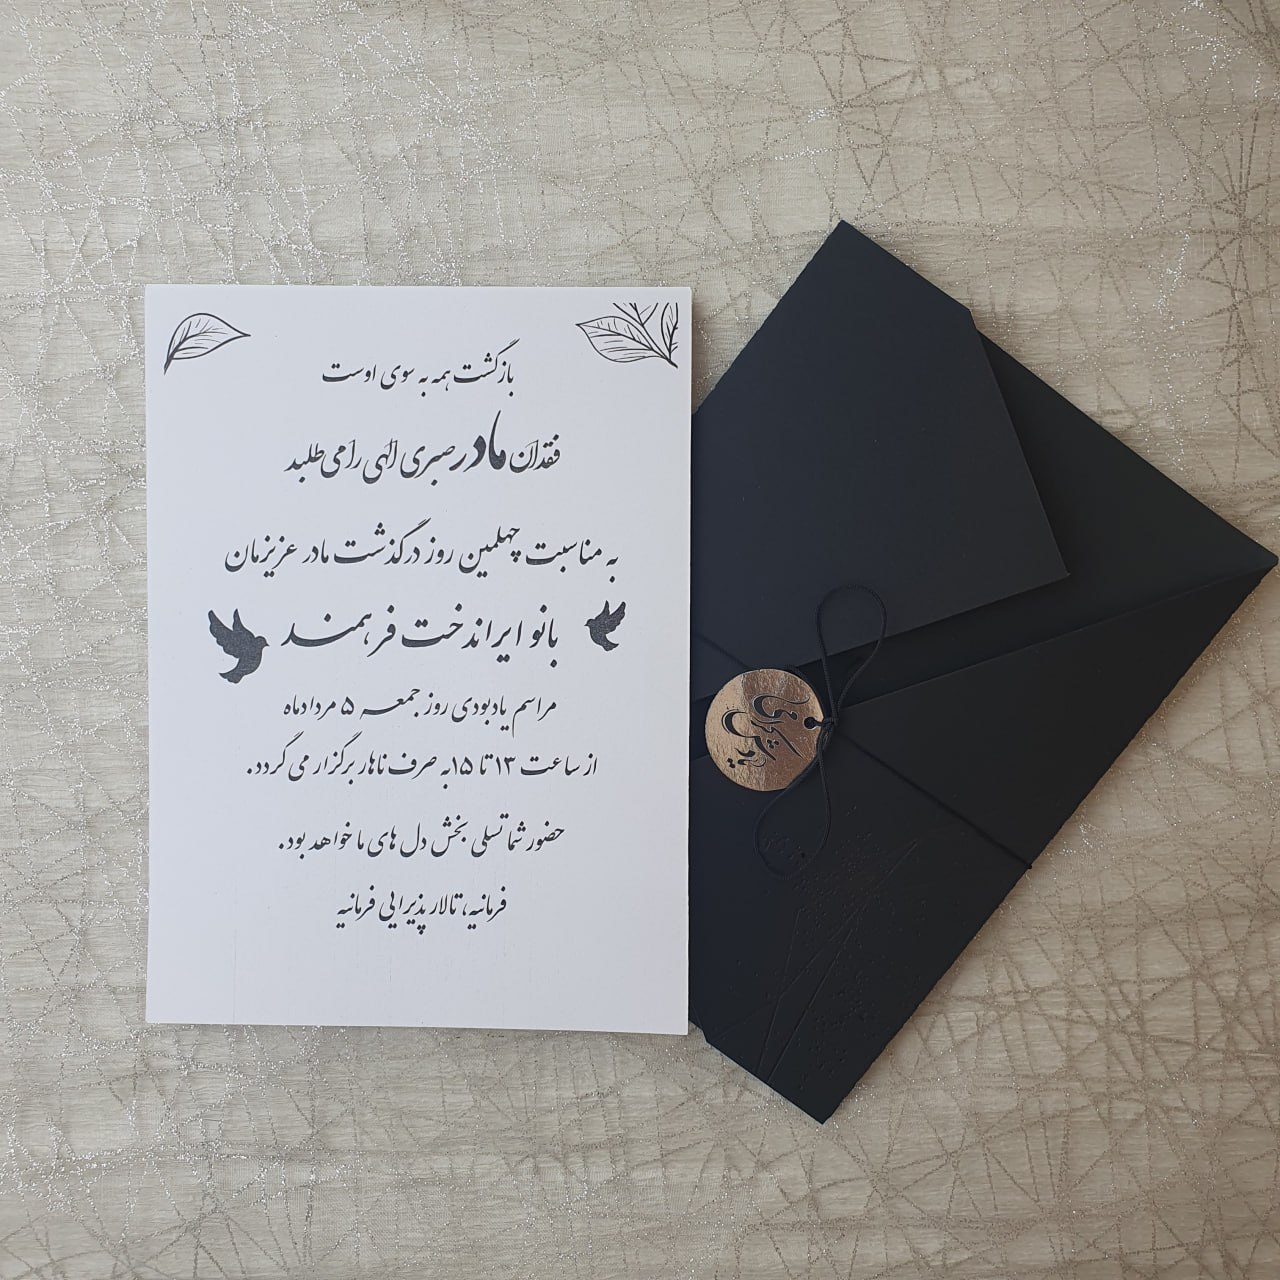 بازگشت همه به سوی اوست
فقدان مادر صبری الهی را می طلبد
به مناسبت چهلمین روز درگذشت مادر عزیزمان
بانو ایراندخت فرهمند
مراسم یادبودی روز جمعه ۵ مردادماه
از ساعت ۱۳ تا ۱۵ به صرف ناهار برگزار می گردد.
حضور شما تسلی بخش دل های ما خواهد بود.
فرمانیه، تالار پذیرایی فرمانیه